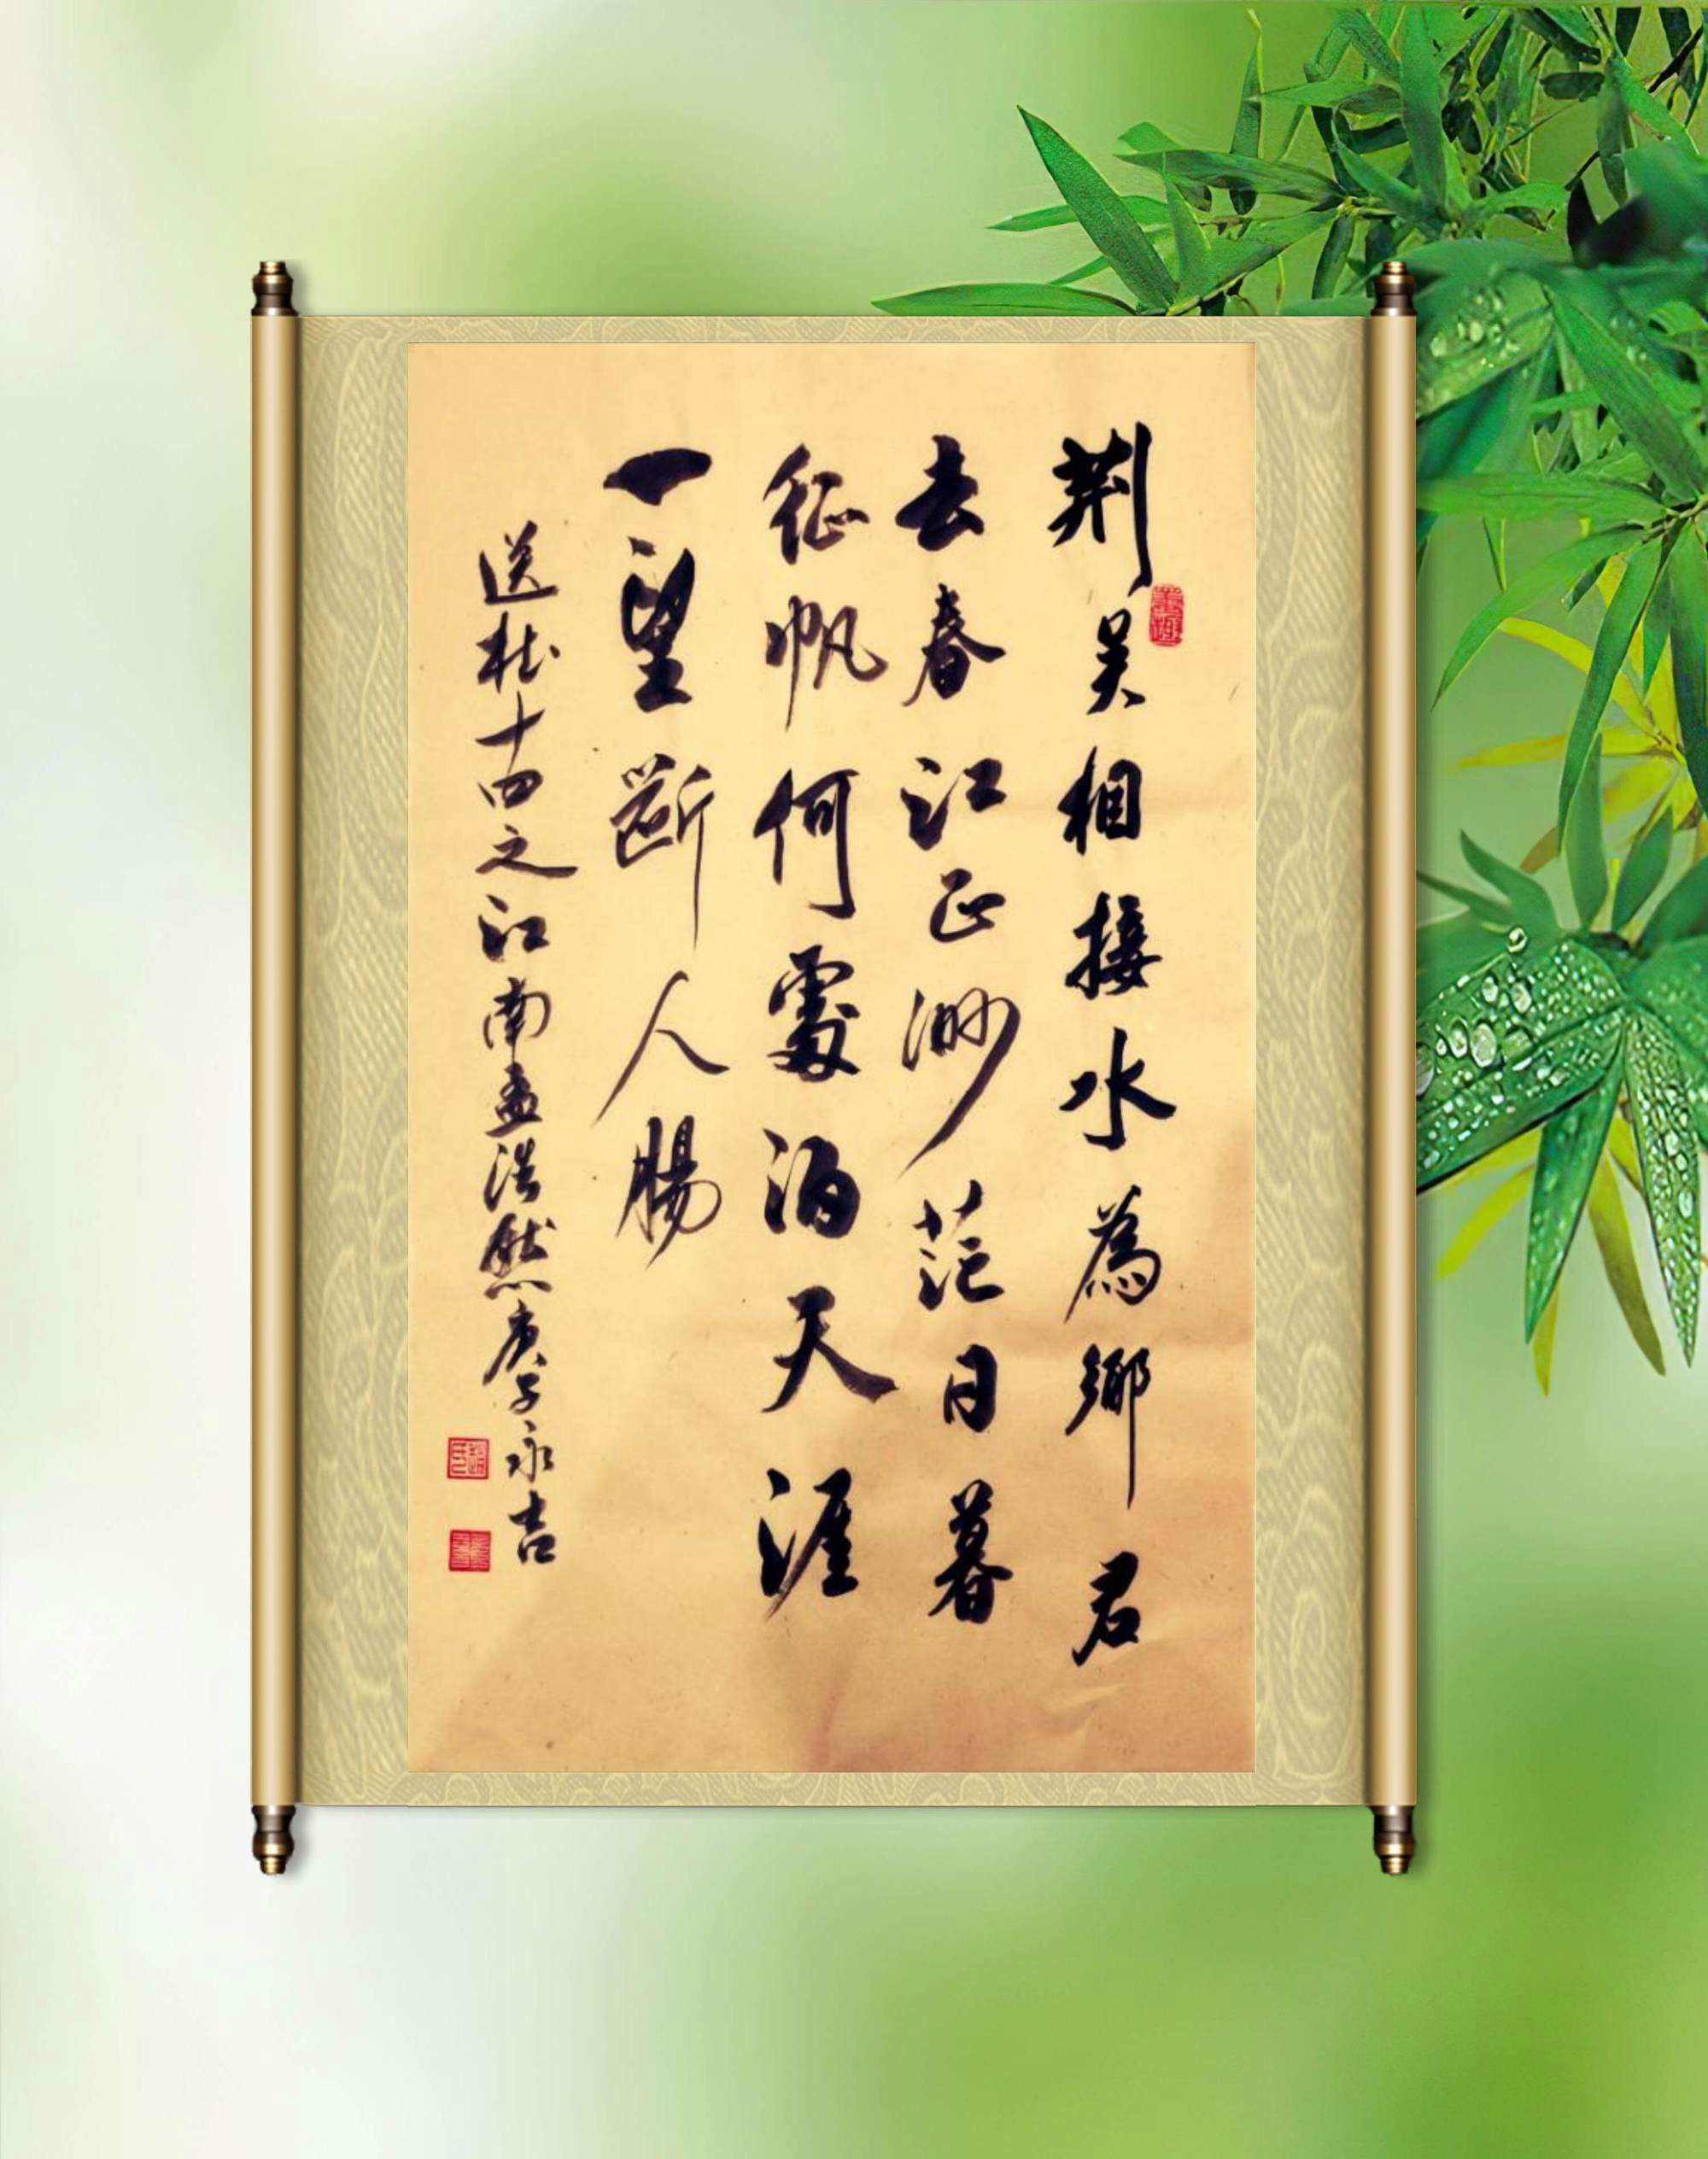 荆吴相接水為鄉君
去春江正渺茫日暮
征帆何處泊天涯
一望斷人腸
送杜十四之江南孟浩然庚子永吉